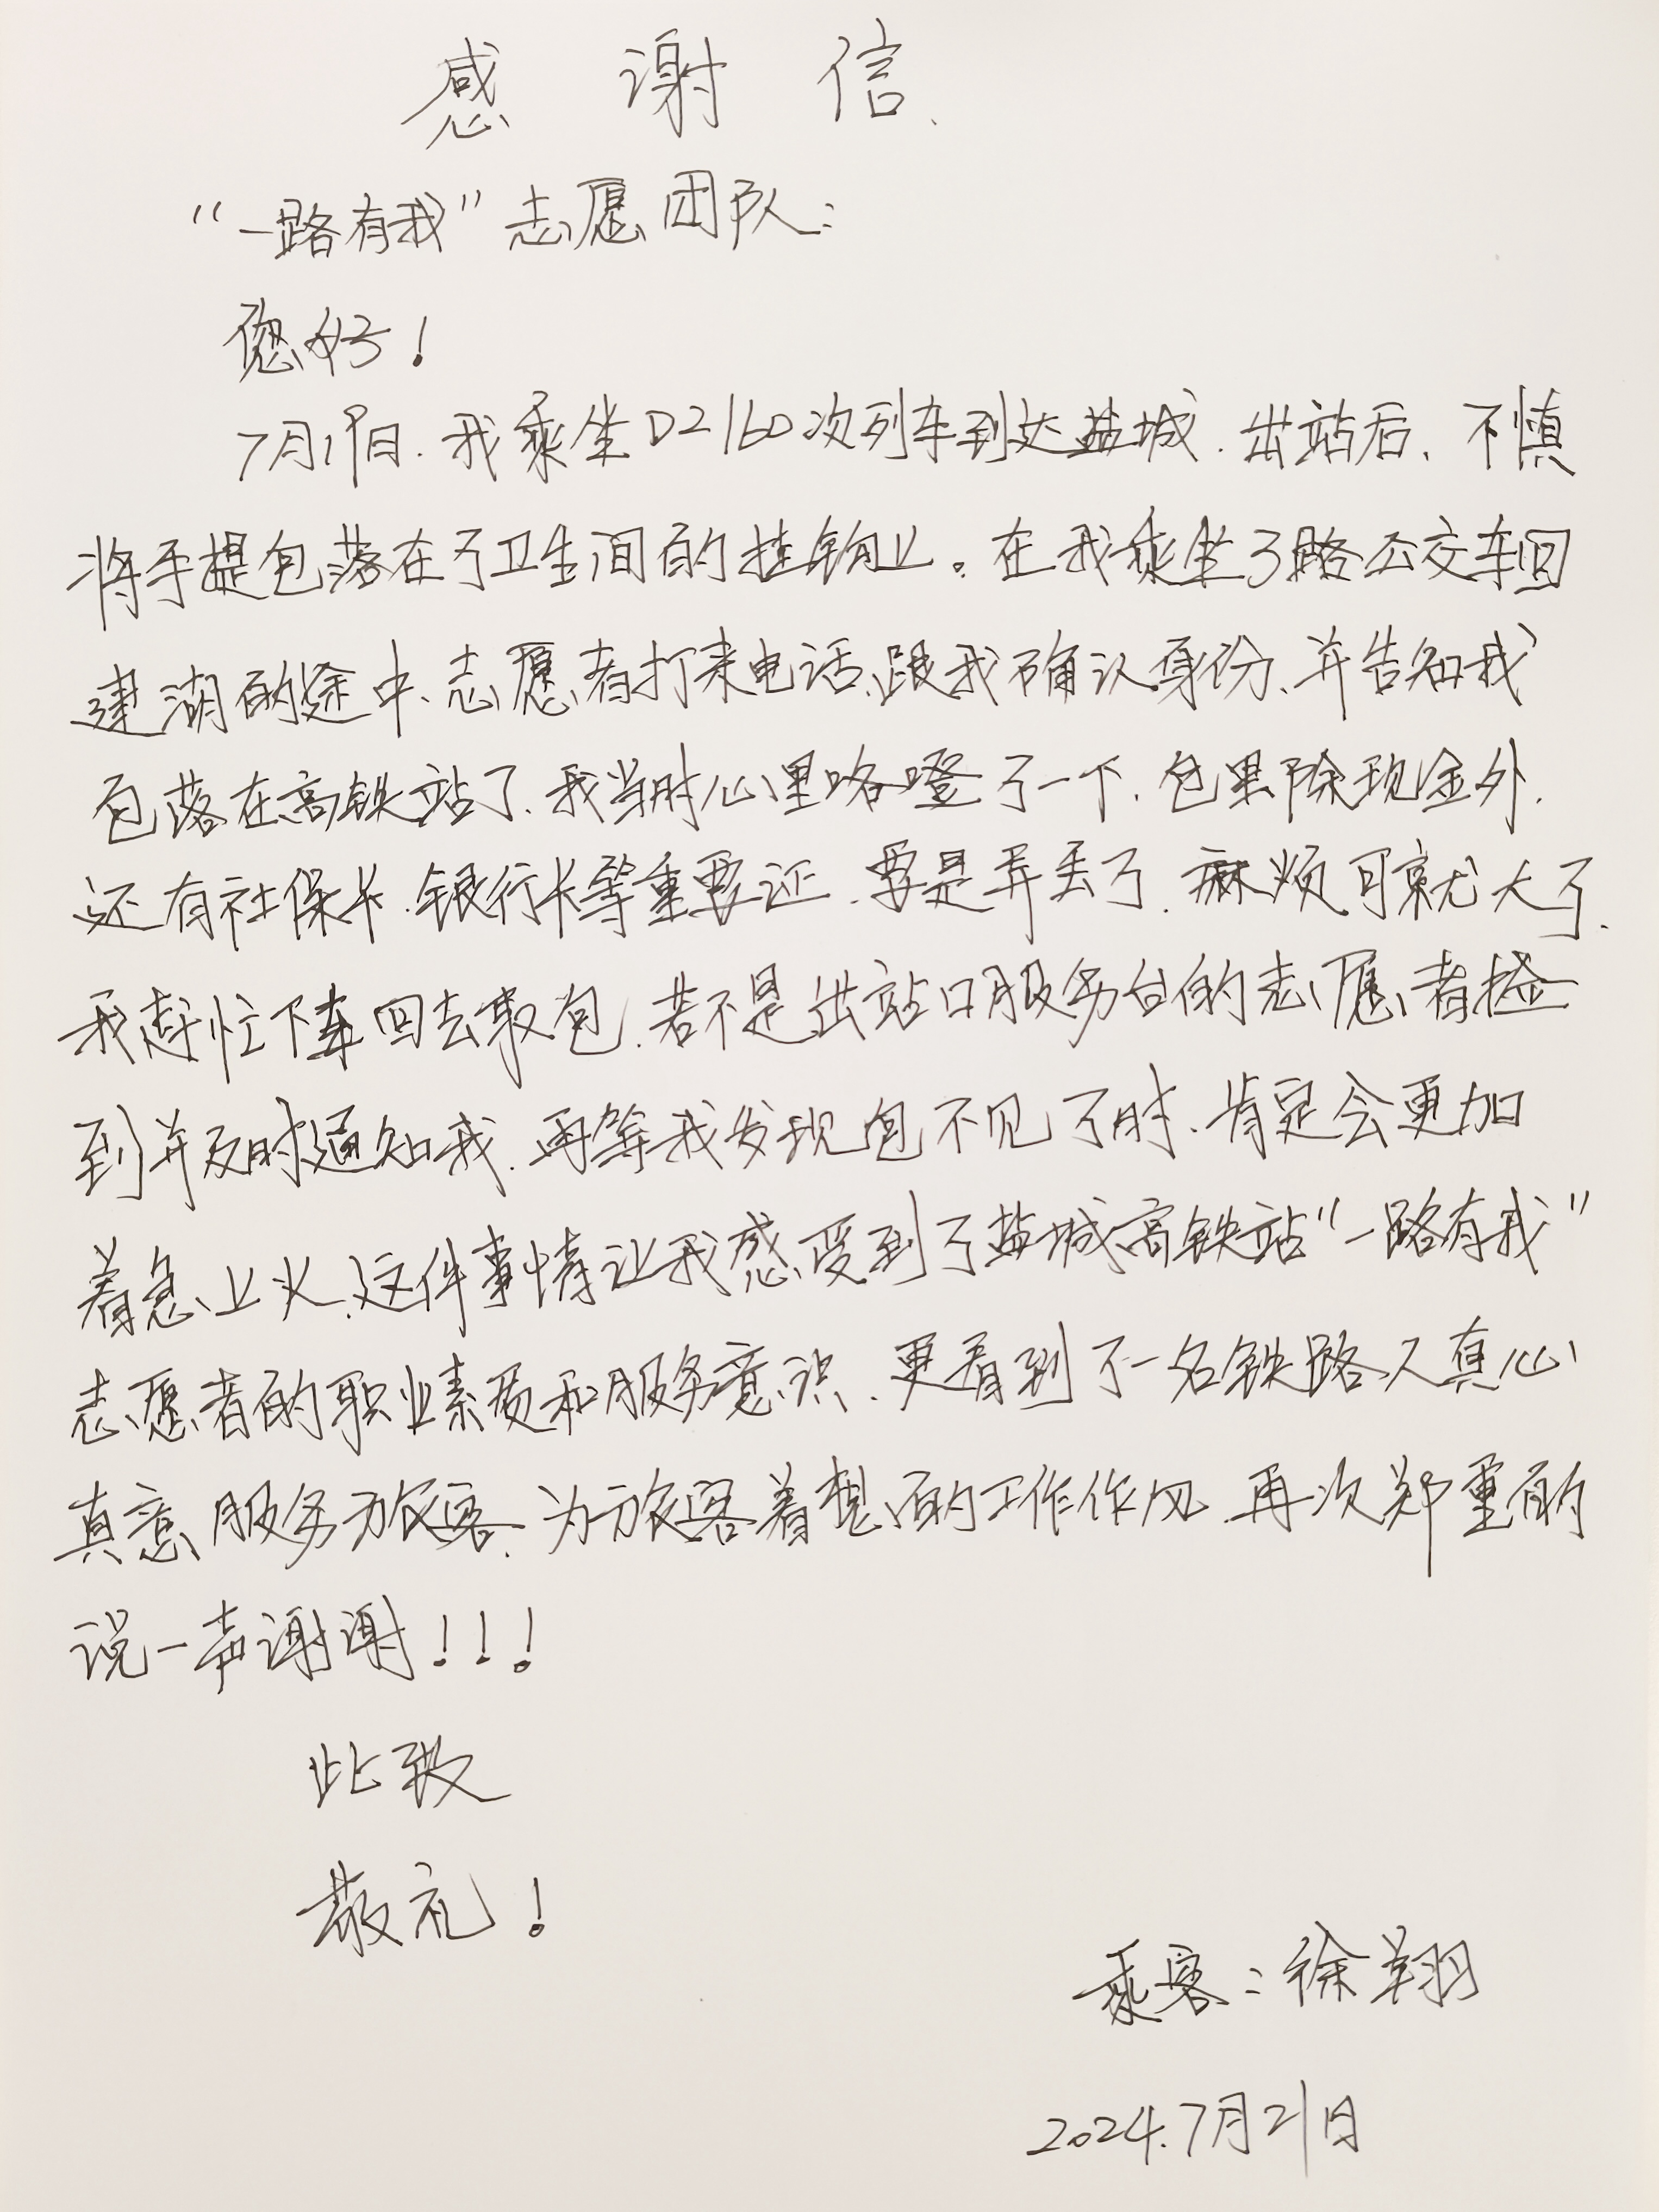 感谢信
“一路有我”志愿团队：
您好！
7月19日.我乘坐D2160次列车到达盐城.出站后、不慎
将手提包落在了卫生间的挂钩上。在我乘坐3路公交车回
建湖的途中、志愿者打来电话、跟我确认身份、并告知我
包落在高铁站了、我当时心里咯噔了一下.包里除现金外.
还有社保卡.银行卡等重要证.要是弄丢了.麻烦可就大了.
我赶忙下车回去取包.若不是出站口服务台的志愿者捡
到并及时通知我.再等我发现包不见了时.肯定会更加
着急上火.这件事情让我感受到了盐城高铁站“一路有我”
志愿者的职业素质和服务意识.更看到了一名铁路人真心
真意服务旅客.为旅客着想的工作作风.再次郑重的
说一声谢谢！！！
此致
敬礼！
乘客：徐翔
2024.7月21日